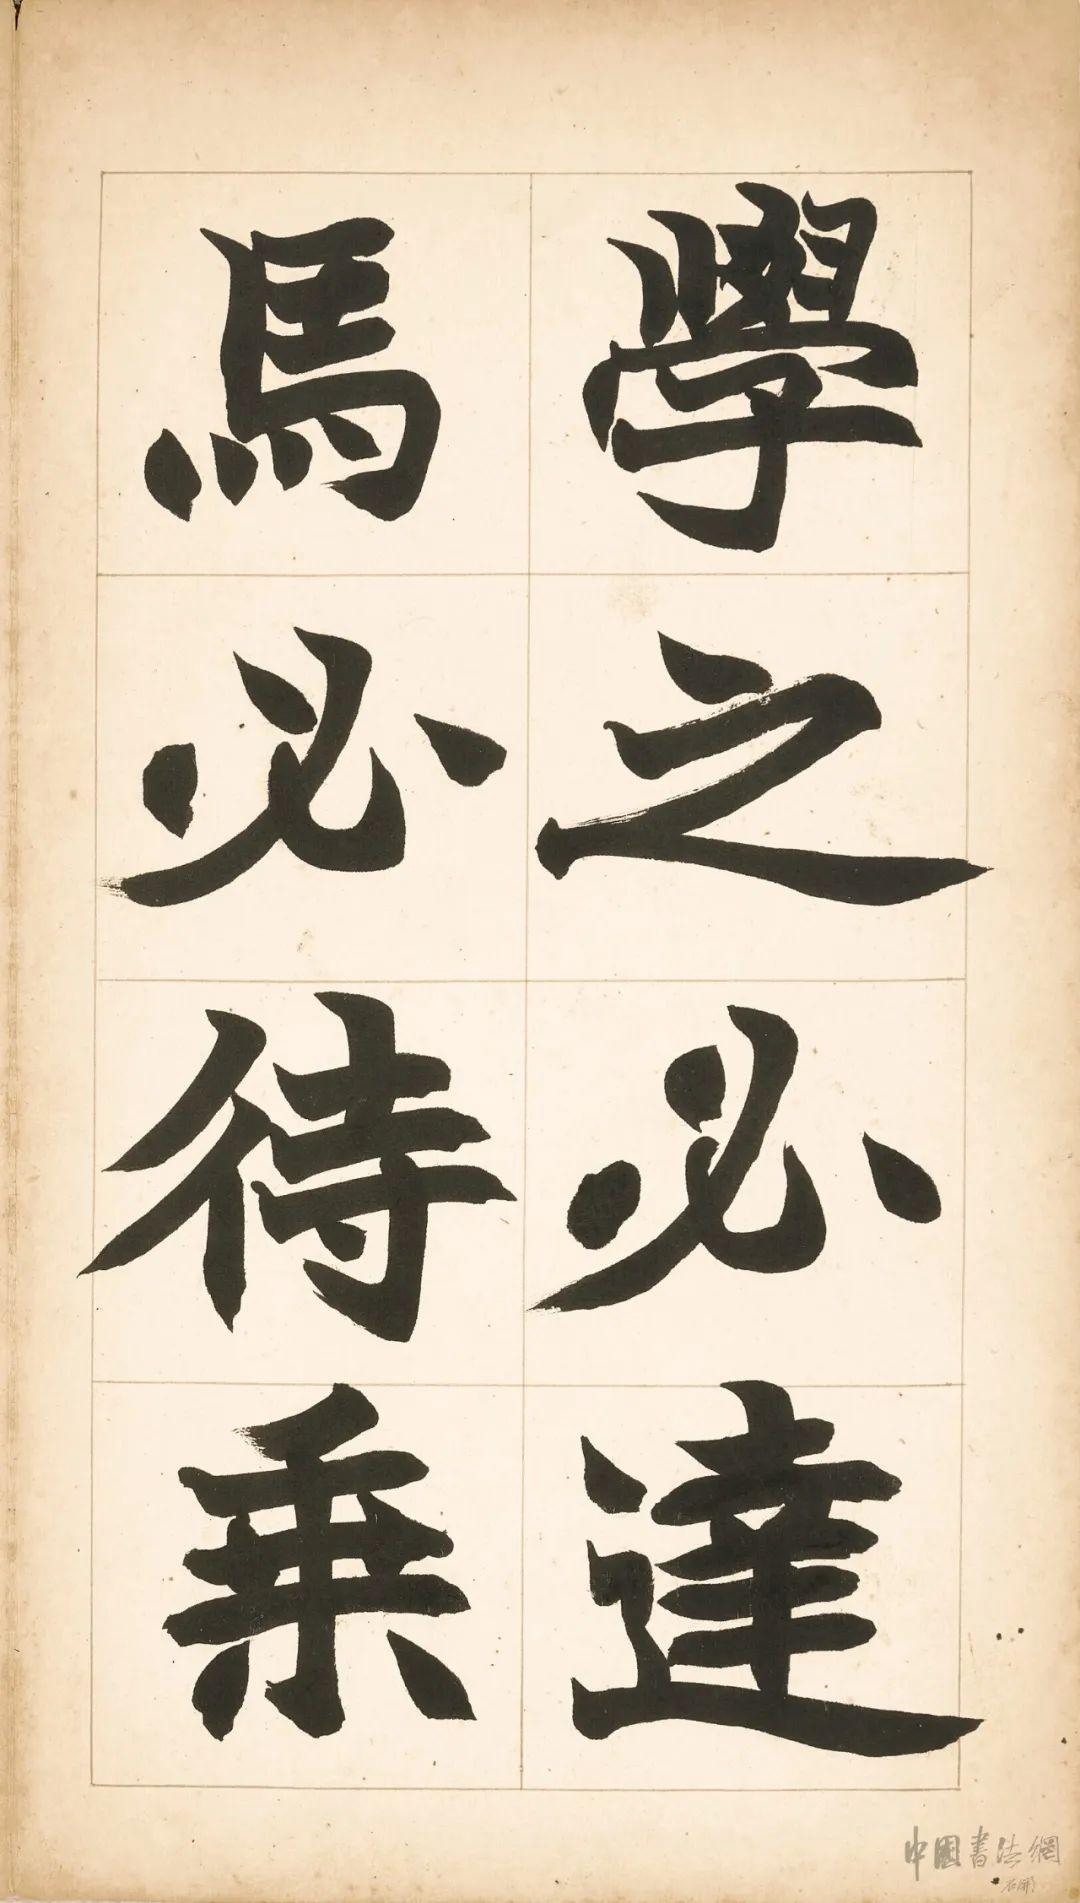 學之必達
馬必待乗
中國書法網